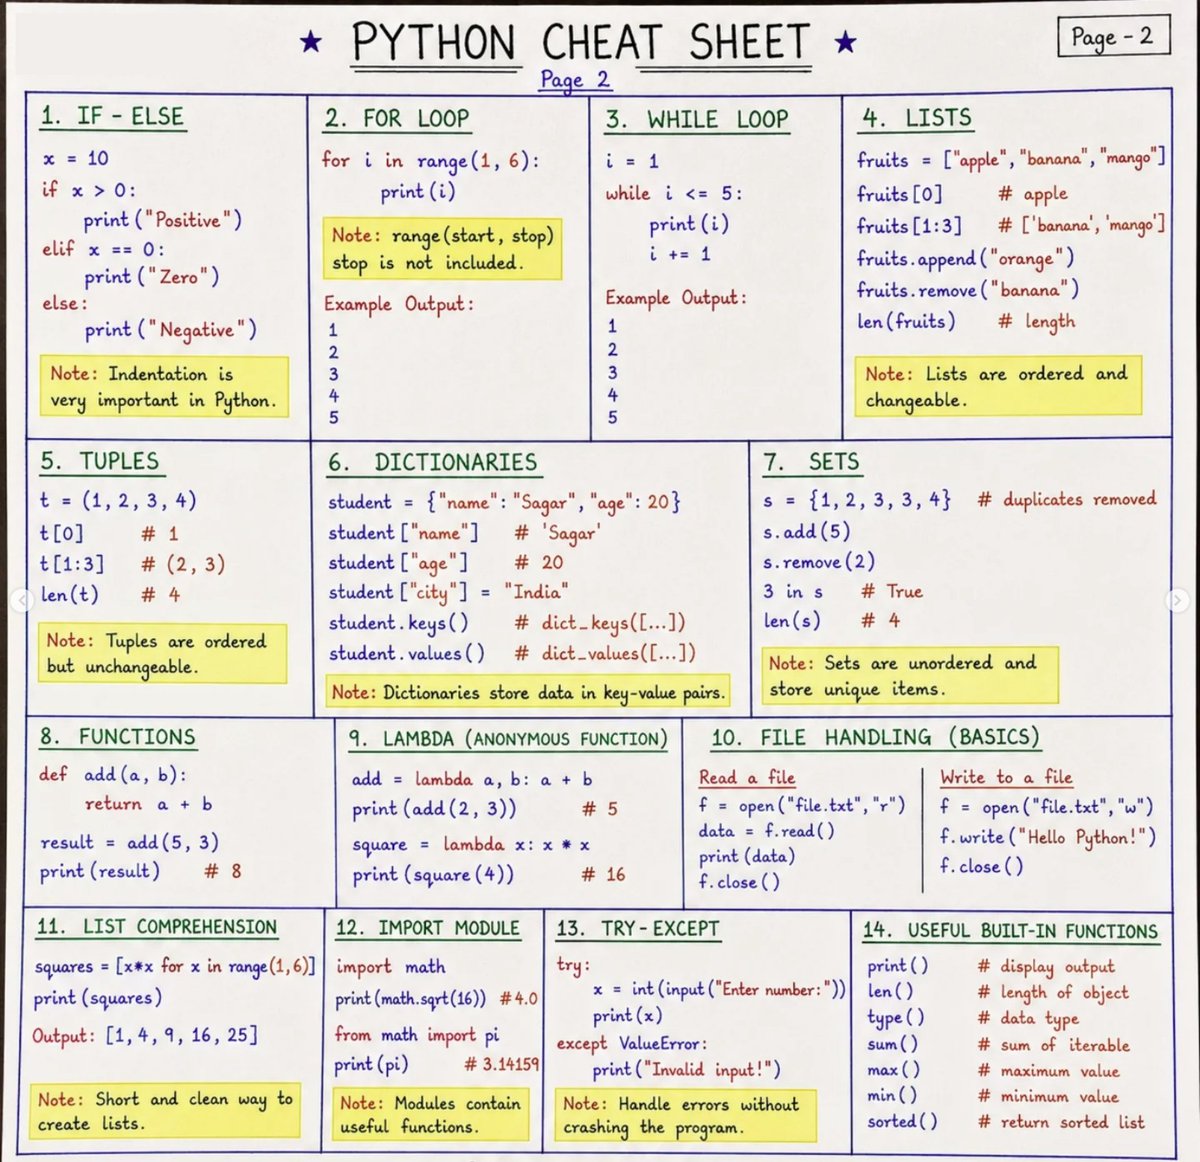 ★ PYTHON CHEAT SHEET ★
Page - 2
Page 2
1. IF - ELSE
x = 10
if x > 0:
    print ("Positive")
elif x == 0:
    print ("Zero")
else:
    print ("Negative")
Note: Indentation is
very important in Python.
2. FOR LOOP
for i in range(1, 6):
    print (i)
Note: range(start, stop)
stop is not included.
Example Output:
1
2
3
4
5
3. WHILE LOOP
i = 1
while i <= 5:
    print (i)
    i += 1
Example Output:
1
2
3
4
5
4. LISTS
fruits = ["apple", "banana", "mango"]
fruits [0] # apple
fruits [1:3] # ['banana', 'mango']
fruits.append ("orange")
fruits.remove ("banana")
len (fruits) # length
Note: Lists are ordered and
changeable.
5. TUPLES
t = (1, 2, 3, 4)
t [0] # 1
t [1:3] # (2, 3)
len (t) # 4
Note: Tuples are ordered
but unchangeable.
6. DICTIONARIES
student = {"name": "Sagar", "age": 20}
student ["name"] # 'Sagar'
student ["age"] # 20
student ["city"] = "India"
student.keys () # dict_keys([...])
student.values () # dict_values([...])
Note: Dictionaries store data in key-value pairs.
7. SETS
s = {1, 2, 3, 3, 4} # duplicates removed
s.add (5)
s.remove (2)
3 in s # True
len (s) # 4
Note: Sets are unordered and
store unique items.
8. FUNCTIONS
def add (a, b):
    return a + b
result = add (5, 3)
print (result) # 8
9. LAMBDA (ANONYMOUS FUNCTION)
add = lambda a, b: a + b
print (add (2, 3)) # 5
square = lambda x: x * x
print (square (4)) # 16
10. FILE HANDLING (BASICS)
Read a file
f = open ("file.txt", "r")
data = f.read ()
print (data)
f.close ()
Write to a file
f = open ("file.txt", "w")
f.write ("Hello Python!")
f.close ()
11. LIST COMPREHENSION
squares = [x*x for x in range(1,6)]
print (squares)
Output: [1, 4, 9, 16, 25]
Note: Short and clean way to
create lists.
12. IMPORT MODULE
import math
print (math.sqrt (16)) #4.0
from math import pi
print (pi) # 3.14159
Note: Modules contain
useful functions.
13. TRY - EXCEPT
try:
    x = int (input ("Enter number:"))
    print (x)
except ValueError:
    print ("Invalid input!")
Note: Handle errors without
crashing the program.
14. USEFUL BUILT-IN FUNCTIONS
print () # display output
len () # length of object
type () # data type
sum () # sum of iterable
max () # maximum value
min () # minimum value
sorted () # return sorted list